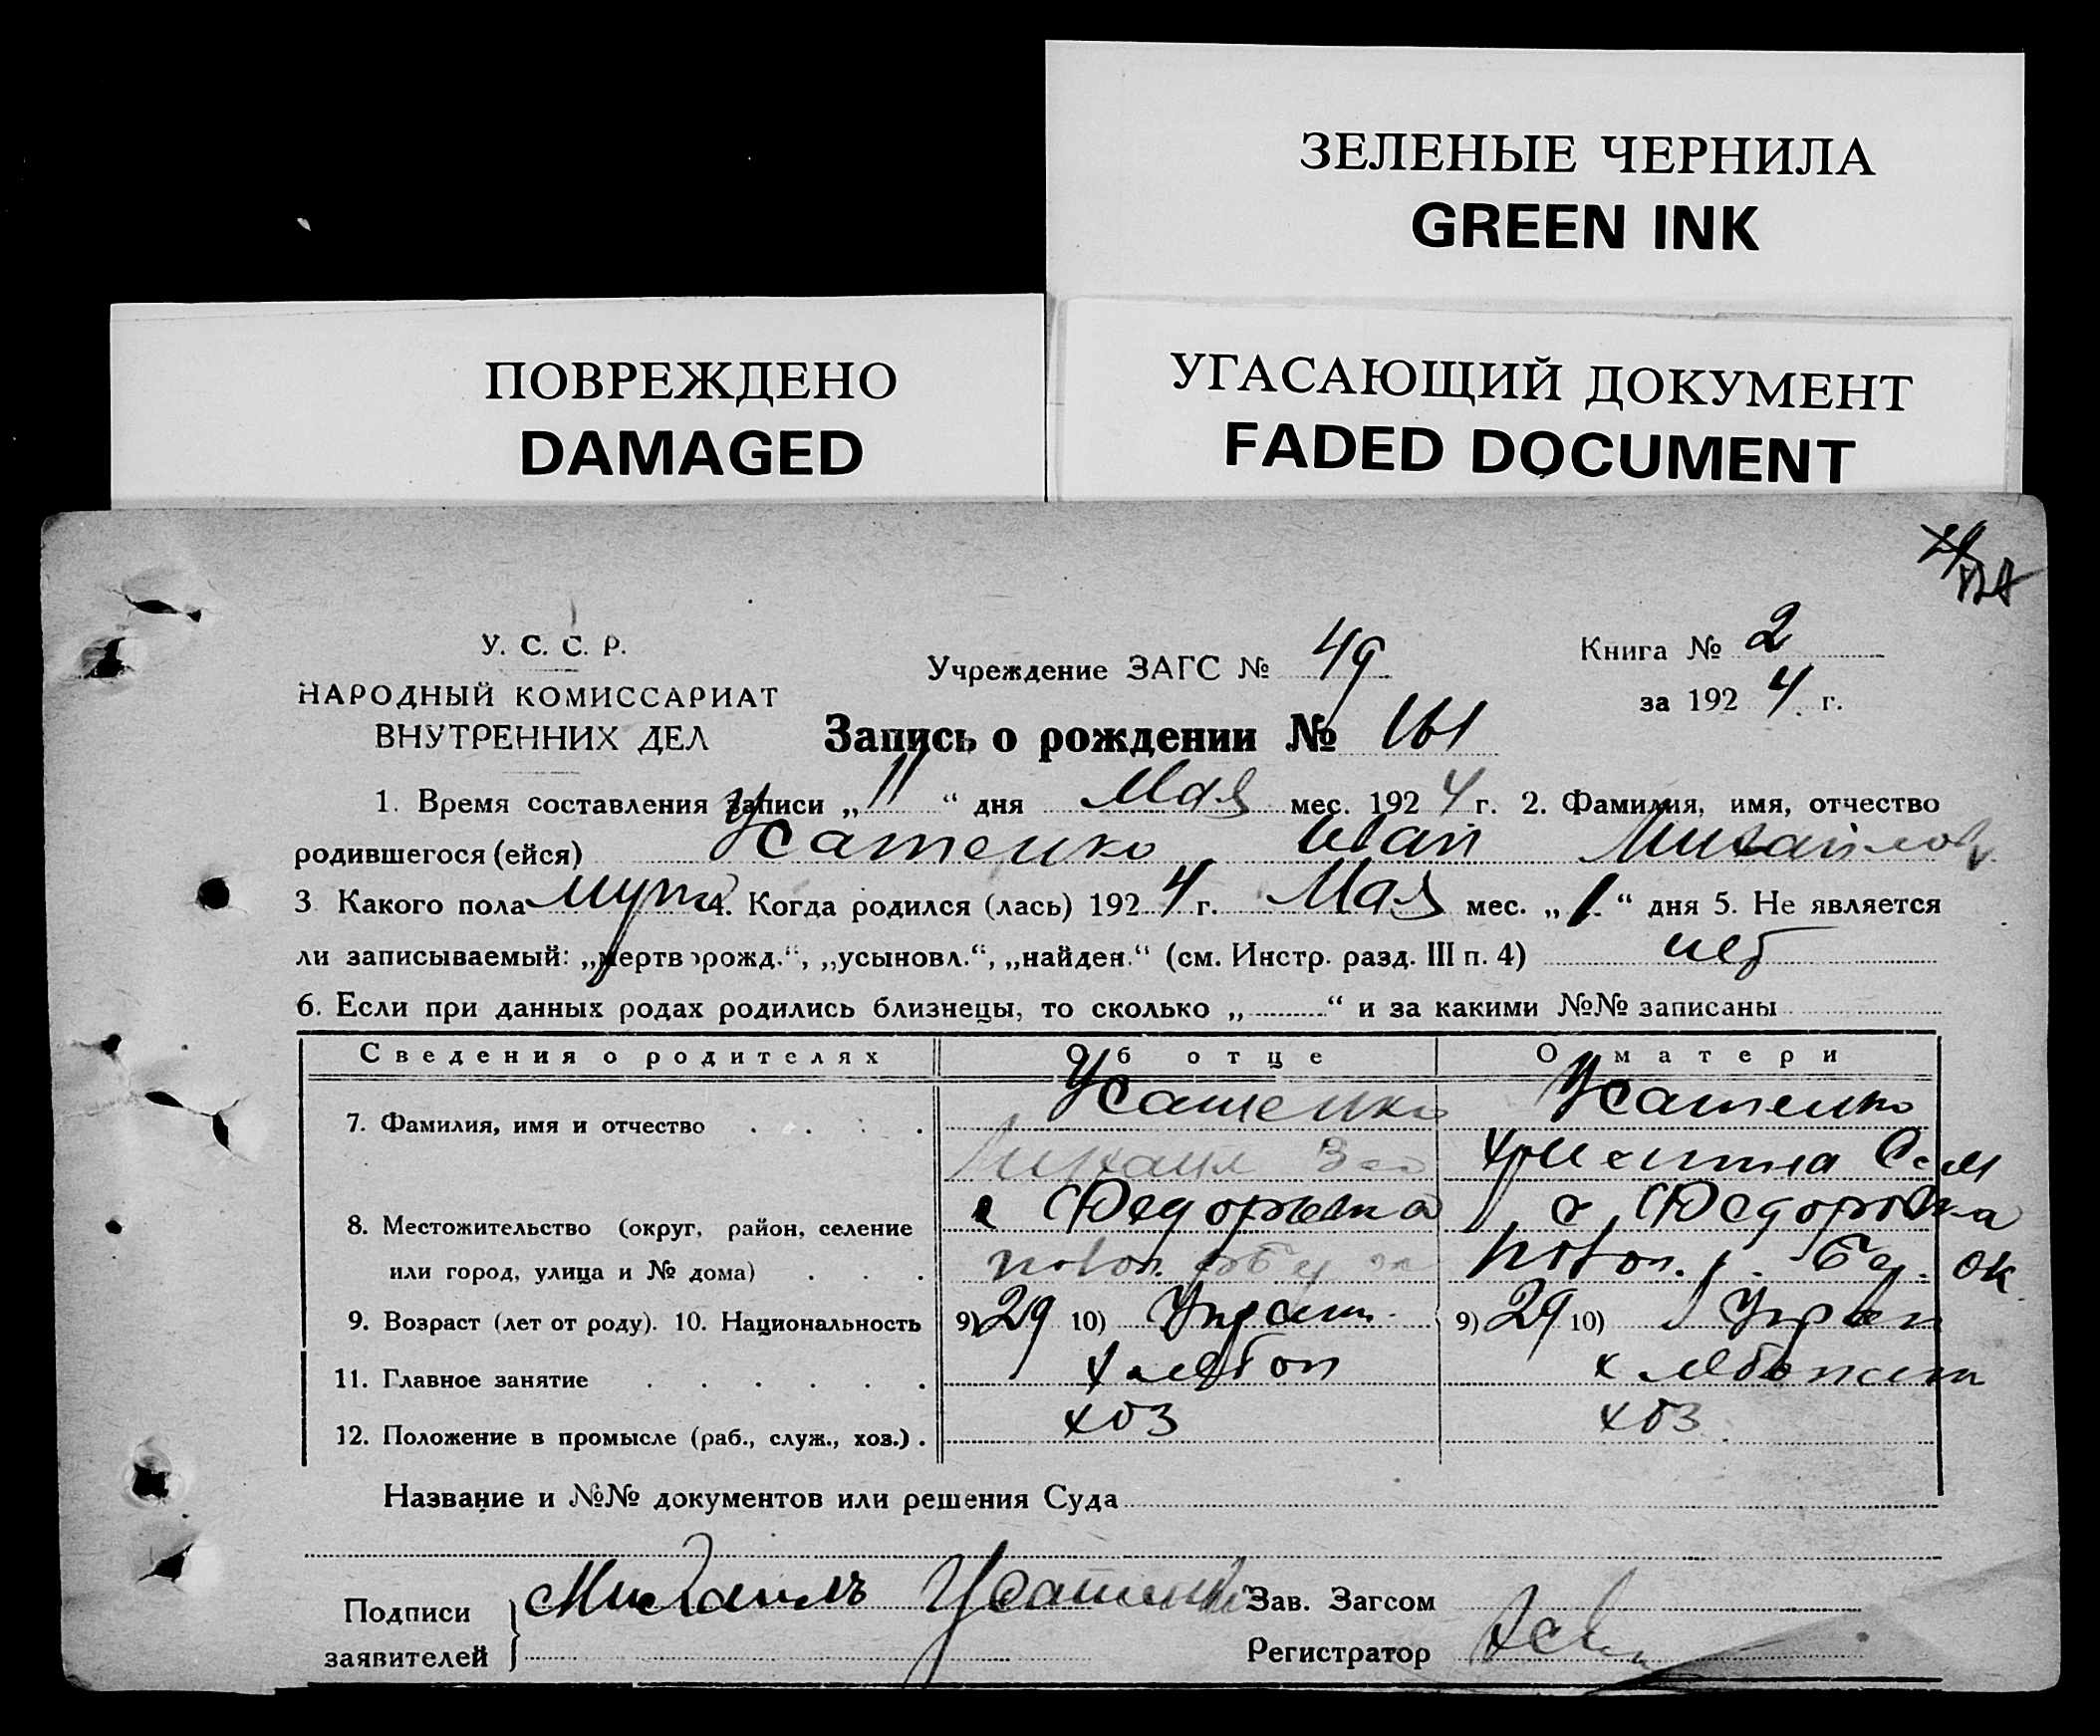 ЗЕЛЕНЫЕ ЧЕРНИЛА
GREEN INK
ПОВРЕЖДЕНО
DAMAGED
УГАСАЮЩИЙ ДОКУМЕНТ
FADED DOCUMENT
У. С. С. Р.
НАРОДНЫЙ КОМИССАРИАТ
ВНУТРЕННИХ ДЕЛ
Учреждение ЗАГС № 49
Книга № 2
за 1924 г.
Запись о рождении № 161
1. Время составления записи „11“ дня Мая мес. 1924 г. 2. Фамилия, имя, отчество
родившегося (ейся) Усатенко Иван Михайлов
3 Какого пола муж 4. Когда родился (лась) 1924 г. Мая мес. „1“ дня 5. Не является
ли записываемый: „мертворожд.“, „усыновл.“, „найден.“ (см. Инстр. разд. III п. 4) нет
6. Если при данных родах родились близнецы, то сколько „ “ и за какими №№ записаны
Сведения о родителях Об отце О матери
7. Фамилия, имя и отчество Усатенко Усатенко
Михаил
8. Местожительство (округ, район, селение с Федоровка с. Федоровка
или город, улица и № дома)
9. Возраст (лет от роду). 10. Национальность 9) 29 10) Украин. 9) 29 10) Украин
11. Главное занятие хлебоп хлебопаш
12. Положение в промысле (раб., служ., хоз.) хоз хоз
Название и №№ документов или решения Суда
Подписи заявителей Михаилъ Усатенко
Зав. Загсом
Регистратор